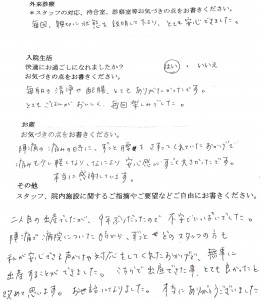 外来診療
＊スタッフの対応、待合室、診察室等お気づきの点をお書きください。
毎回、親切に状態を説明して下さり、とても安心できました。
入院生活
快適にお過ごしになれましたか？ はい ・ いいえ
お気づきの点をお書きください。
毎日の清浄や配膳、してもありがたかったです。
とてもごはんがおいしく、毎回楽しみでした。
お産
お気づきの点をお書きください。
陣痛の痛みの時に、ずっと腰をさすってくれていたおかげで
痛みも少し軽くなり、なにより安心感がすごく大きかったです。
本当に感謝しています。
その他
スタッフ、院内施設に関するご指摘やご要望などご自由にお書きください。
二人目の出産でしたが、9年ぶりだったので不安でいっぱいでした。
陣痛で病院についた時から、ずっとどのスタッフの方も
私が安心できる声かけや対応をしてくれたおかげで、無事に
出産することができました。こちらで出産できた事、とても良かったと
改めて思います。お世話になりました。本当にありがとうございました